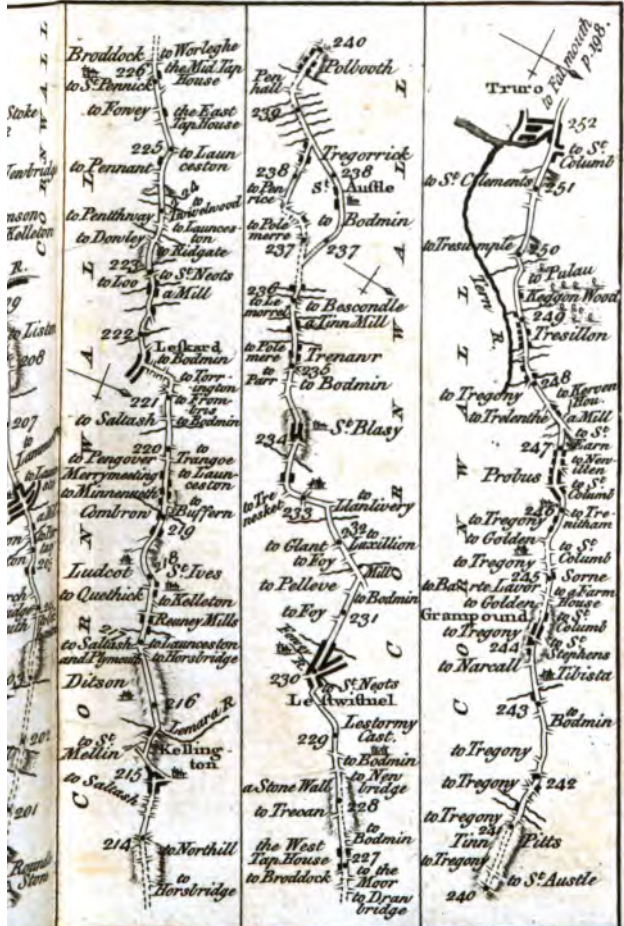 CORNWALL
Stoke
207
208
206
203
202
201
Round
Stone
CORNWALL
Broddock
to Worleghe
226
the Mid Tap
House
to St. Pennick
to Fowey
the East
Tap House
225
to Laun
ceston
to Pennant
224
to
Trowelwood
to Penithway
to Launces
ton
to Dowley
to Ridgate
223
to St. Neots
to Loo
a Mill
222
Leskard
to Bodmin
to Torr
ington
221
to From
bris
to Saltash
to Bodmin
220
to Trangoe
to Pengover
to Laun
ceston
Merrymeeting
to Minnenweth
to
Buffern
Combrow
219
218
St. Ives
Ludcot
to Kelleton
to Quethick
Reuney Mills
217
to Saltash
and Plymouth
to Launceston
to Horsbridge
Ditson
216
Lemara R.
to St.
Mellin
Kelling-
ton
215
to Saltash
214
to Northill
to
Horsbridge
CORNWALL
240
Polbooth
Pen
hall
239
Tregorrick
238
238
to Pen
rice
St.
Austle
to Pole
merre
to
Bodmin
237
237
236
to Le
morrel
to Bescondle
a Tinn Mill
to Pole
mere
Trenanr
235
to
Parr
to Bodmin
St. Blasy
234
to Tre
nesket
233
to
Llanlivery
232
to
Laxillion
to Glant
to Foy
Mill
to Pelleve
to Bodmin
to Foy
231
Fowy
R.
230
to St. Neots
Lestwithiel
229
Lestormy
Cast.
to Bodmin
to New
bridge
a Stone Wall
228
to Trevan
to
Bodmin
the West
Tap House
227
to Broddock
to the
Moor
to Draw
bridge
CORNWALL
to Falmouth
p. 198.
Truro
252
to St.
Columb
to St. Clements
251
to Tresumple
250
to Pulau
Keggon Wood
249
Tern R.
Tresillon
248
to Tregony
to Kerven
Bou.
a Mill
to Trelenthe
to St.
Earn
247
to New
itten
Probus
to St.
Columb
246
to Tre
nitham
to Tregony
to Golden
to St.
Columb
to Tregony
245
Sorne
to a Farm
House
to Golden
Grampound
to St.
Columb
to Tregony
244
to St.
Stephens
to Narcall
Tibista
243
to
Bodmin
to Tregony
to Tregony
242
to Tregony
241
Tinn
Pitts
to Tregony
240
to St. Austle